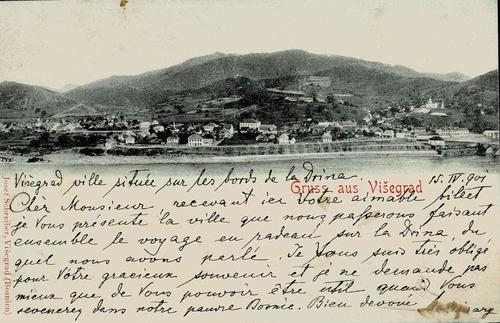 Gruss aus Višegrad
15. IV 901
Višegrad ville située sur les bords de la Drina.
Chèr Monsieur recevant ici Votre aimable billet
je Vous présente la ville que nous passerons faisant
ensemble le voyage en radeau sur la Drina, du
quel nous avons parlé. Je Vous suis très obligé
pour Votre gracieux souvenir et je ne demande pas
mieux que de Vous pouvoir être utile quand Vous
revenerez dans notre pauvre Bosnie. Bien devoué
Josef Schreiber Višegrad (Bosnien)